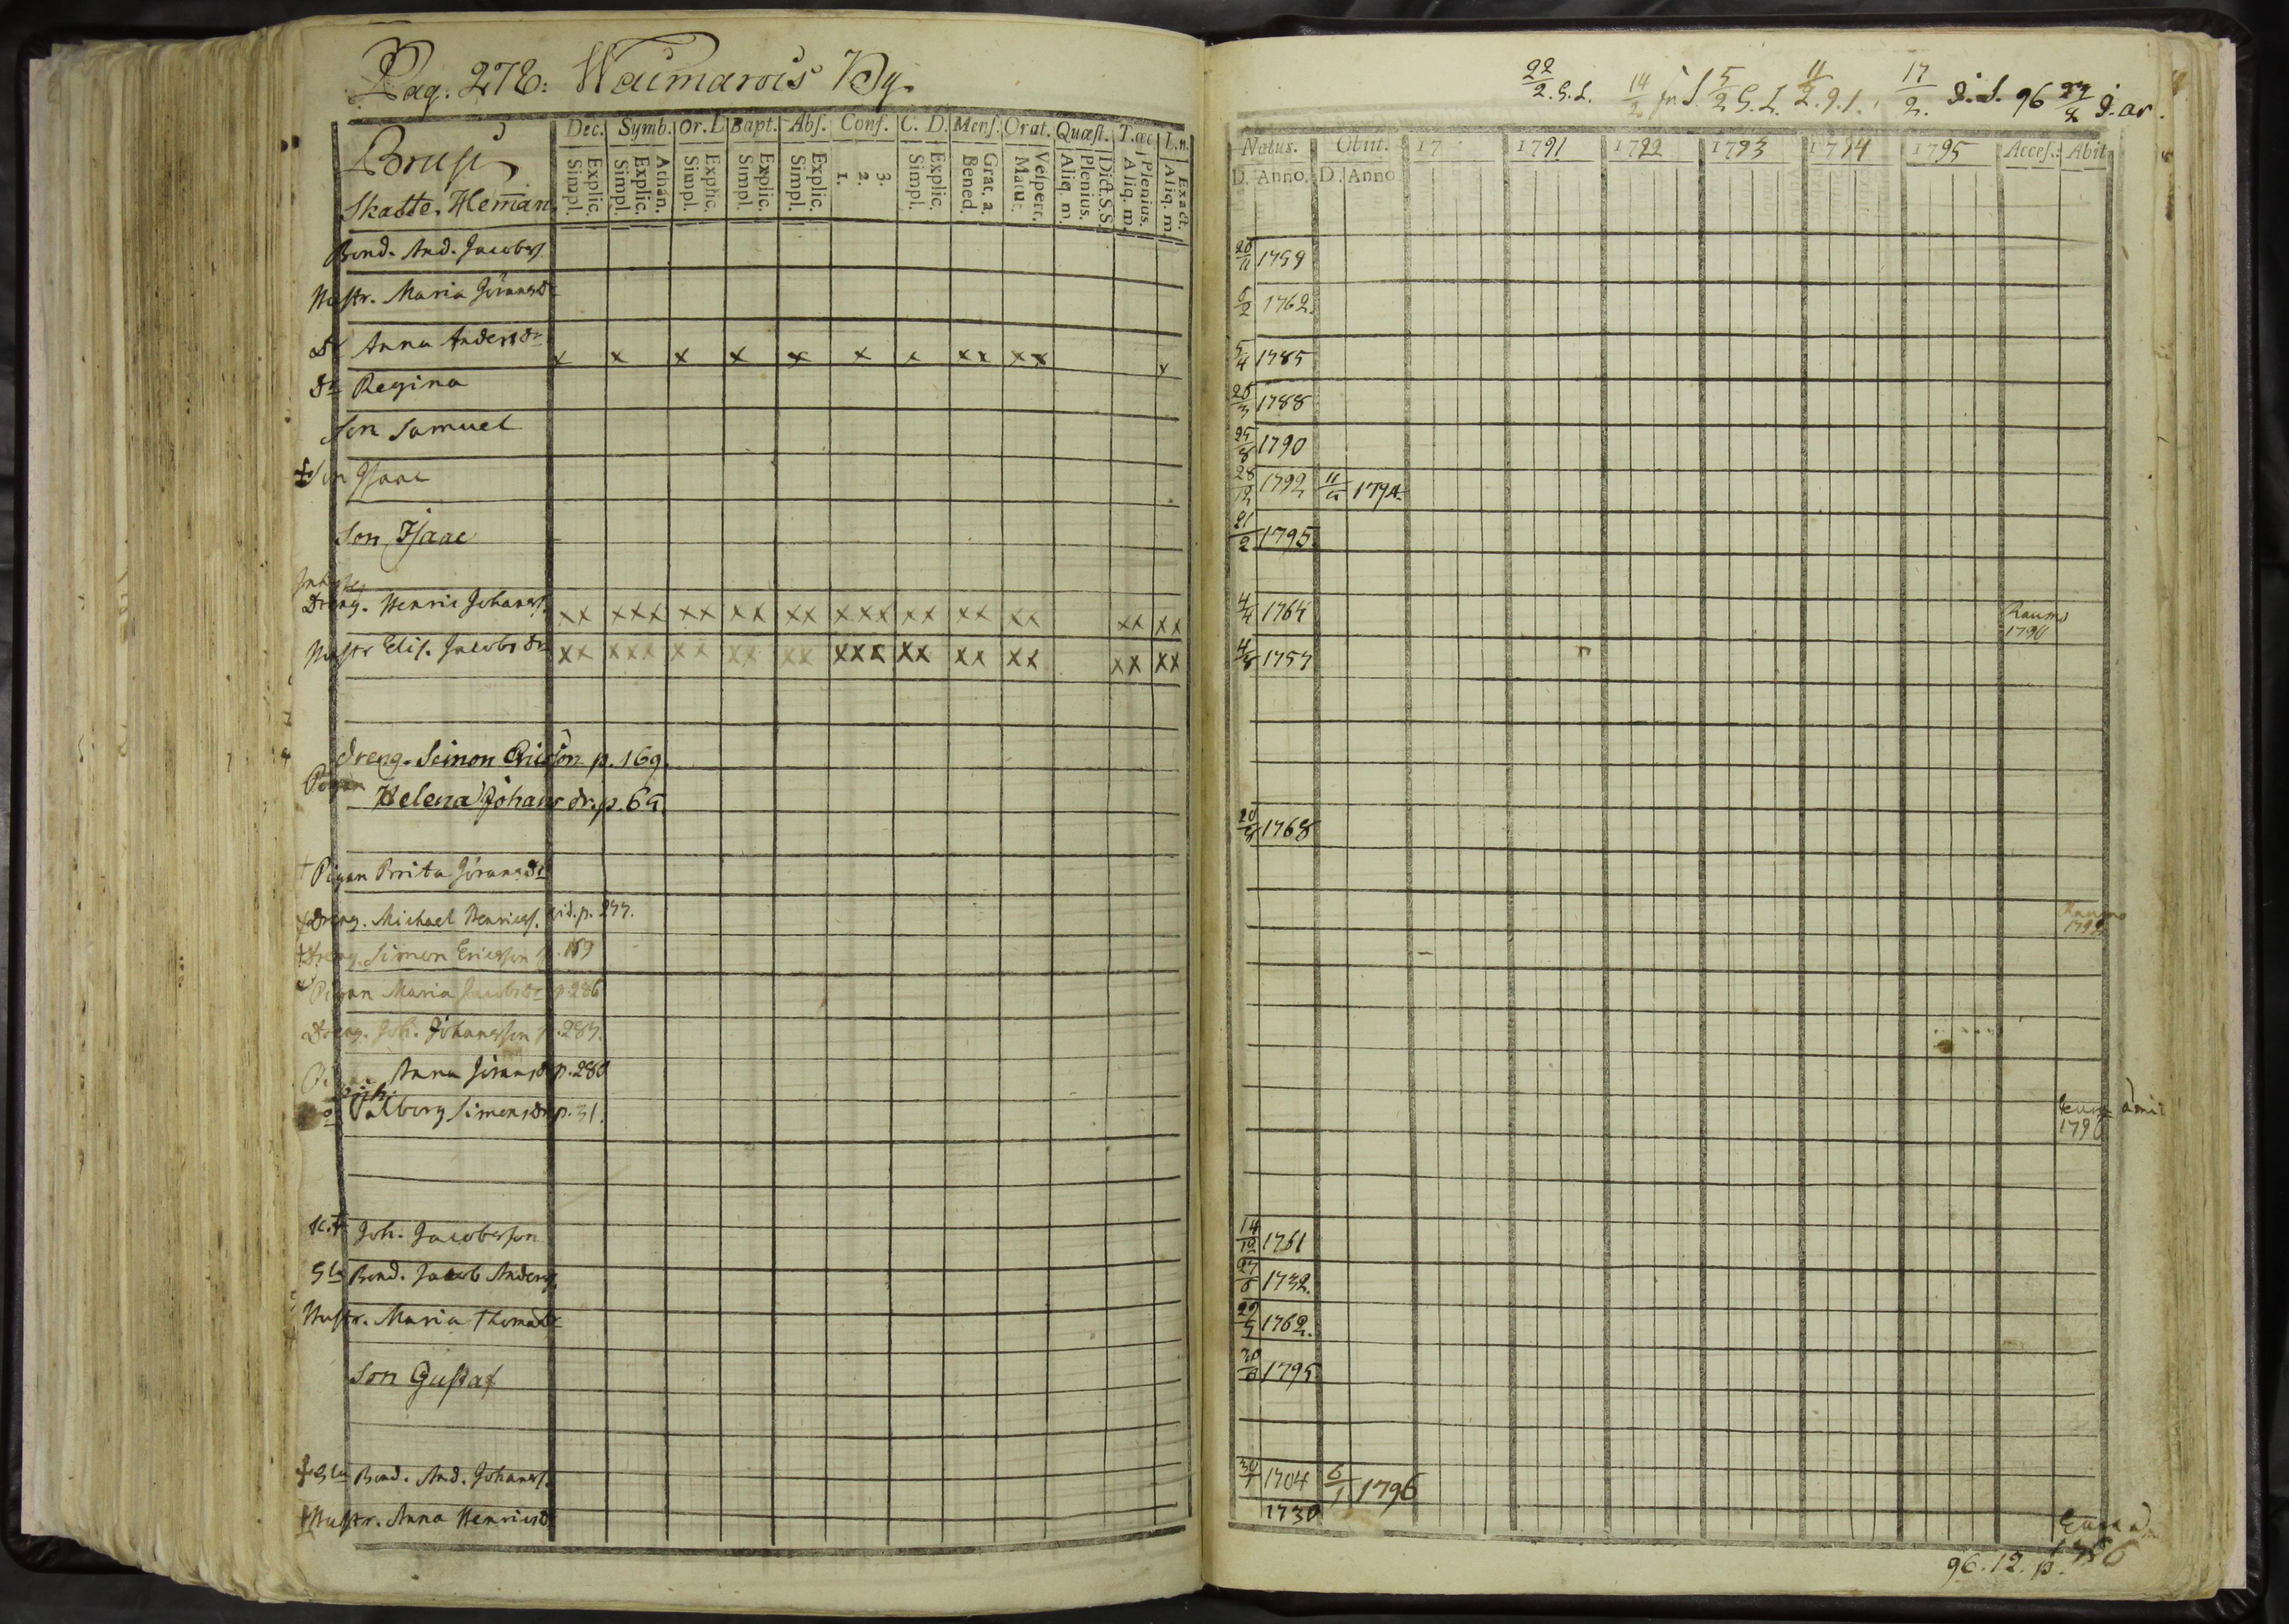 Pag. 278: Waimarois By.
Brusi
Skatte. Heman.
Dec. Symb. Or. D Bapt. Abs. Conf. C. D. Mens. Orat. Quæst. T.œc. L.n.
Explic. Simpl. Athan. Explic. Simpl. Explic. Simpl. Explic. Simpl. Explic. Simpl. 3. 2. 1. Explic. Simpl. Grat. a. Bened. Vespert. Matut. Dict.S.S. Plenius. Aliq. m. Plenius. Aliq. m. Exact. Aliq. m.
Bond. And. Jacobss
Hustr. Maria Jöransdr
Dr Anna Andersdr x x x x x x x xx xx x
Dr Regina
Son Samuel
† Son Isaac
Son Isaac
Dreng. Henric Johanss. xx xxx xx xx xx xxx xx xx xx xx xx
Hustr Elis. Jacobsdr xx xxx xx xx xx xxx xx xx xx xx xx
Dreng. Simon Ericsson p. 169.
Pigan Helena Johansdr. p. 65.
Pigan Brita Jöransdr
Dreng. Michael Henricss. vid. p. 277.
Dreng. Simon Ericsson p. 169
Pigan Maria Jacobsdr p. 286
Dreng. Joh. Johansson p. 287.
Anna Jöransdr p. 280
Valborg Simonsdr p. 31.
Joh. Jacobsson
Gla Bond. Jacob Anderss.
Hustr. Maria Thomasdr
Son Gustaf
† Gla Bond. And. Johanss.
† Hustr. Anna Henricsdr
22/2. G. L. 14/2 5/2 G. L. 11/2. g. l. 17/2. 96
Natus. Obiit. 17 1791 1792 1793 1794 1795 Acces. Abit.
D. Anno. D. Anno
1759
1762.
5/4 1785
1788
25/8 1790
28/12 1792 1794
21/2 1795.
1764 Raumo 1790
1757
1768
Raumo
14/12 1761
1732.
1762.
1795
1704 6/1 1796
1730
96. 12. p.